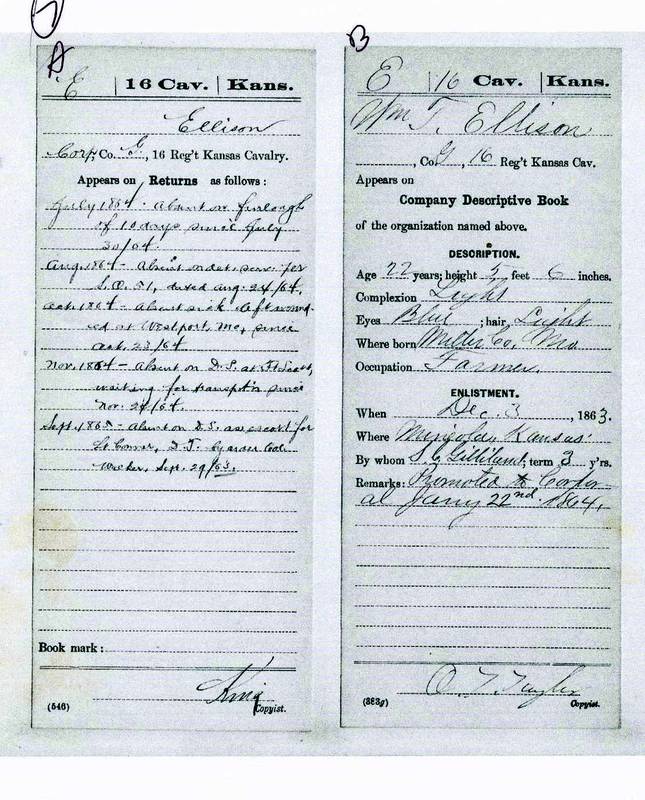 A
E | 16 Cav. | Kans.
Ellison
Corp, Co. G, 16 Reg't Kansas Cavalry.
Appears on Returns as follows:
July 1864 - Absent on furlough
of 10 days since July
30/64.
Aug. 1864 - Absent on det. serv. per
S.O. 51, dated Aug. 24/64.
Oct. 1864 - Absent sick left wound-
ed at Westport, Mo, since
Oct. 23/64
Nov. 1864 - Absent on D.S. at Ft Scott,
waiting for transpt'n since
Nov. 24/64.
Sept. 1865 - Absent on D.S. as escort for
Connor, D.T. by order Col.
Sept. 29/65.
Book mark:
King
(546) Copyist.
B
E | 16 Cav. | Kans.
Wm T. Ellison
, Co. G, 16 Reg't Kansas Cav.
Appears on
Company Descriptive Book
of the organization named above.
DESCRIPTION.
Age 22 years; height 5 feet 6 inches.
Complexion Light
Eyes Blue; hair Light
Where born Miller Co, Mo
Occupation Farmer.
ENLISTMENT.
When Dec. 3, 1863.
Where Kansas.
By whom S. C. Gilliland; term 3 y'rs.
Remarks: Promoted to Corpor-
al Jany 22nd 1864,
(383g) Copyist.